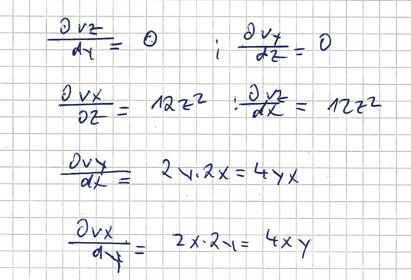 ∂vz/dy = 0 ; ∂vy/dz = 0
∂vx/∂z = 12z² ; ∂vz/dx = 12z²
∂vy/dx = 2y·2x = 4yx
∂vx/dy = 2x·2y = 4xy